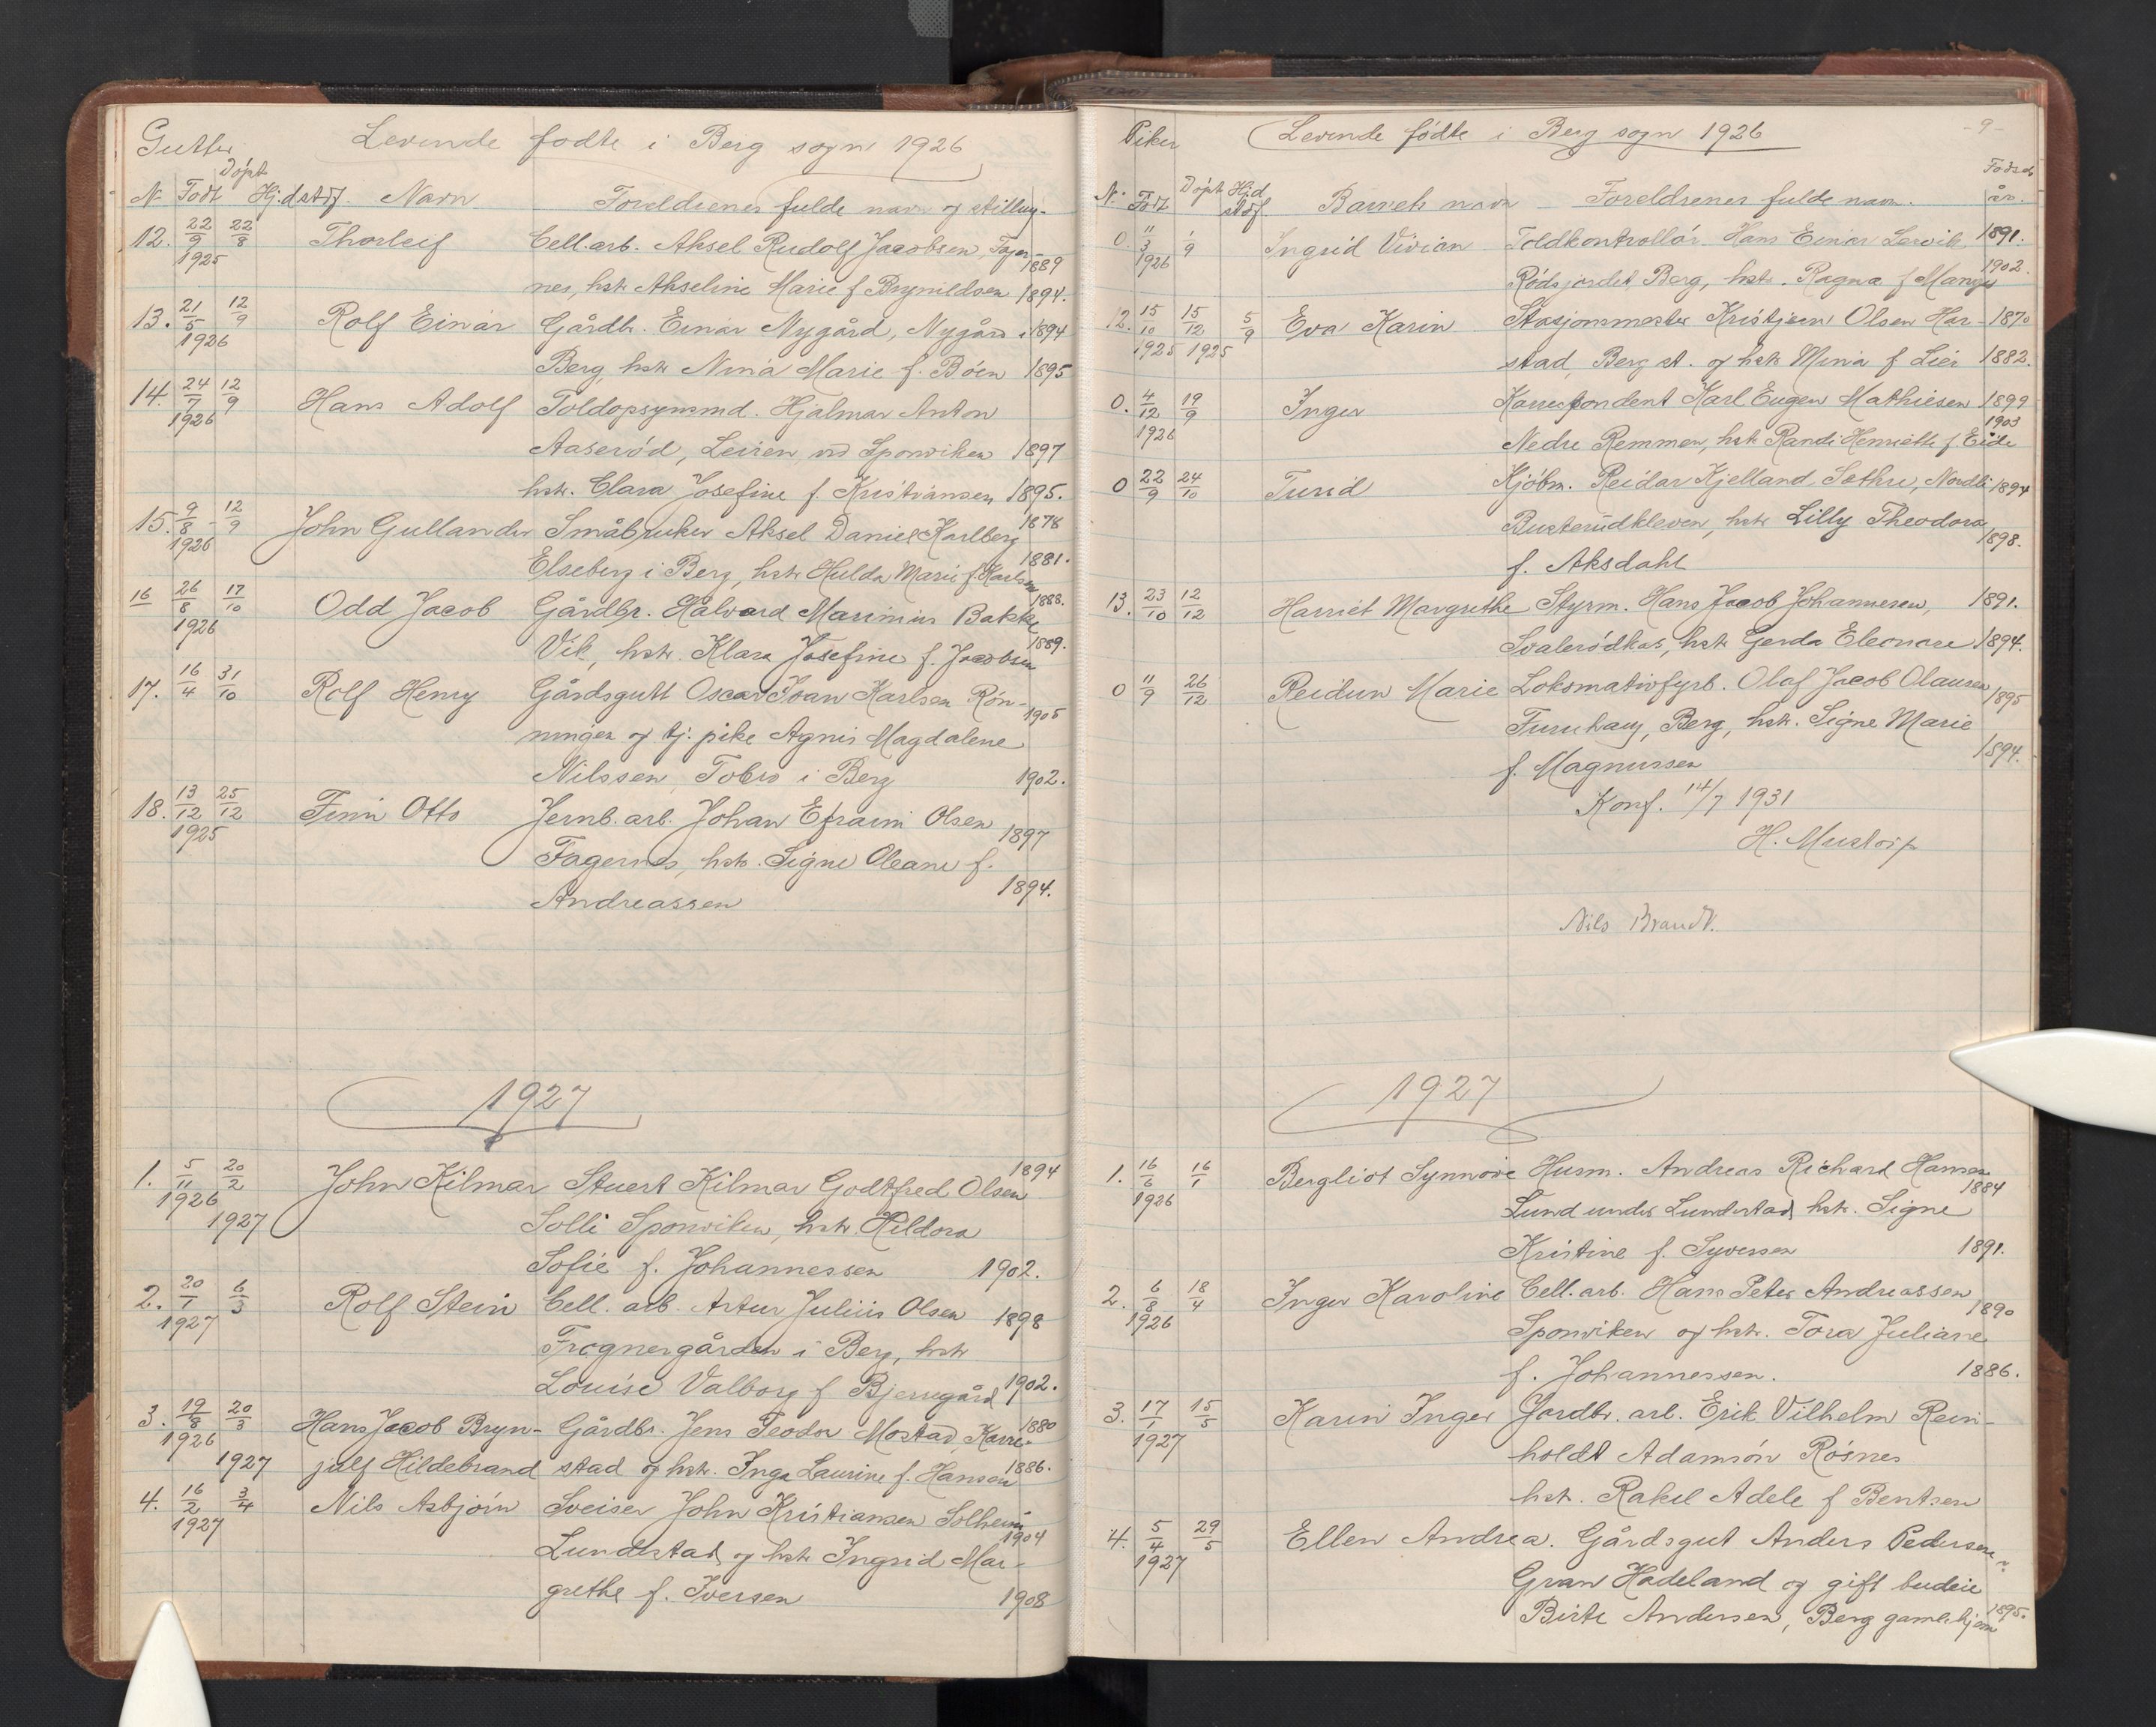 Gutter
Levende fødte i Berg sogn 1926
Døpt
N Født Hj.dstdf. Navn Foreldrenes fulde navn og stilling.
12. 22/9 1925 22/8 Thorleif Cell.arb. Aksel Rudolf Jacobsen, Fager- 1889
nes, hstr. Akseline Marie f. Brynildsen 1894.
13. 21/5 1926 12/9 Rolf Einar Gårdbr. Einar Nygård, Nygård i 1894
Berg, hstr Nina Marie f. Bøen 1895
14. 24/7 1926 12/9 Hans Adolf Toldopsynsmd. Hjalmar Anton
Aaserød, Leiren vd Sponviken 1897
hstr. Clara Josefine f. Kristiansen 1895.
15. 9/8 1926 - 12/9 John Gullander Småbruker Aksel Daniel Karlberg 1878
Elseberg i Berg, hstr Hulda Marie f. Karlsen 1881.
16 26/8 1926 17/10 Odd Jacob Gårdbr. Halvard Marinius Bakke 1888.
Vik, hstr. Klara Josefine f. Jacobsen 1889.
17. 16/4 31/10 Rolf Henry Gårdsgutt Oscar Ivar Karlsen Røn- 1905
ningen og tj. pike Agnes Magdalene
Nilssen, Tobro i Berg 1902.
18. 13/12 1925 25/12 Finn Otto Jernb. arb. Johan Efraim Olsen 1897
Fagernes, hstr. Signe Oleane f.
Andreassen 1894.
1927
1. 5/11 1926 20/2 1927 John Kilmar Stuert Kilmar Godtfred Olsen 1894
Solli Sponviken, hstr. Hildora
Sofie f. Johannessen 1902.
2. 20/1 1927 6/3 Rolf Stein Cell. arb. Artur Julius Olsen 1898
Frognergården i Berg, hstr
Louise Valborg f Bjerregård 1902.
3. 19/8 1926 20/3 1927 Hans Jacob Bryn- Gårdbr. Jens Teodor Mostad, Karre- 1880
julf Hildebrand stad og hstr. Inga Laurine f. Hansen 1886.
4. 16/2 1927 3/4 Nils Asbjørn Sveiser John Kristiansen Solheim 1904
Lundestad og hstr Ingrid Mar-
grethe f. Iversen 1908
Piker Levende fødte i Berg sogn 1926 -9-
N. Født Døpt Hjd stdf. Barnets navn – Foreldrenes fulde navn. Fødsels år.
0. 11/3 1926 1/9 Ingrid Vivian Toldkontrollør Hans Einar Lervik 1891.
Rødsjordet Berg, hstr. Ragna f Mangs 1902.
12. 15/10 1925 15/12 1925 5/9 Eva Karin Stasjonsmester Kristjan Olsen Har- 1870
stad, Berg st. og hstr Mina f Lier 1882.
0. 4/12 1926 19/9 Inger Korrespondent Karl Eugen Mathiesen 1899
Nedre Remmen, hstr Randi Henriette f Eide 1903
0 22/9 24/10 Turid Kjøbm. Reidar Kjelland Sethre, Nordli 1894
Busterudkleven, hstr Lilly Theodora
f. Aksdahl 1898.
13. 23/10 12/12 Harriet Margrethe Styrm. Hans Jacob Johannesen, 1891.
Svalerødkas, hstr Gerda Eleonore 1894.
0 11/9 26/12 Reidun Marie Lokomotivfyrb. Olaf Jacob Olausen 1895
Furuhaug, Berg, hstr. Signe Marie
f. Magnussen 1894.
Konf. 14/7 1931
H. Mustorp
Nils Brandt.
1927
1. 16/6 1926 16/1 Bergliot Synnøve Husm. Andreas Richard Hansen 1884
Lund under Lundestad hstr. Signe
Kristine f. Syversen 1891.
2. 6/8 1926 18/4 Inger Karoline Cell. arb. Hans Peter Andreassen 1890
Sponviken og hstr. Tora Juliane
f. Johannessen. 1886.
3. 17/1 1927 15/5 Karin Inger Jordbr. arb. Erik Vilhelm Rein-
holdt Adamsøn Røsnes
hstr. Rakel Adele f Bentsen
4. 5/4 1927 29/5 Ellen Andrea. Gårdsgut Anders Pedersen
Gran Hadeland og gift budeie
Birte Andersen, Berg gamlehjem 1895.